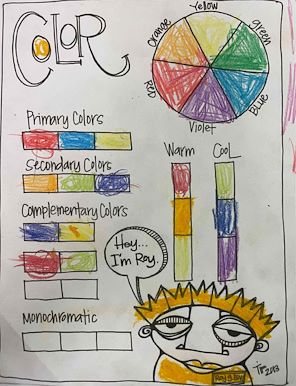 COLOR
Yellow
Orange
Green
Red
Blue
Violet
Primary Colors
Secondary Colors
Complementary Colors
Monochromatic
Warm
Cool
Hey...
I'm Roy.
Roy g. biv
2013